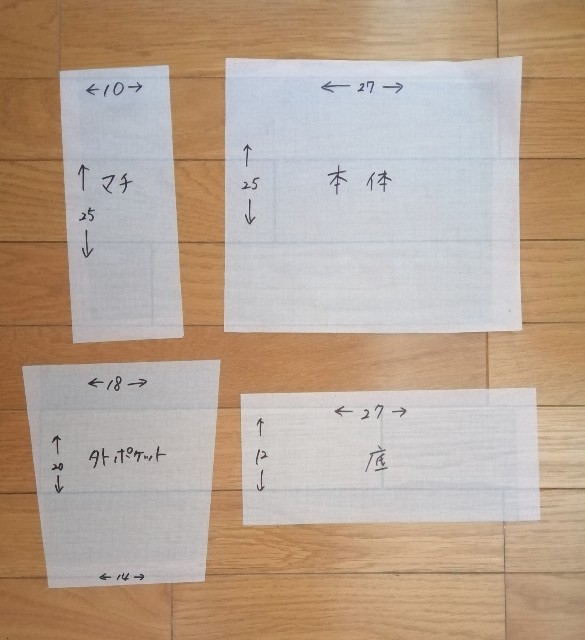 ←10→
↑
マチ
25
↓
←27→
↑
25
本体
↓
←18→
↑
20
外ポケット
↓
←14→
←27→
↑
12
底
↓